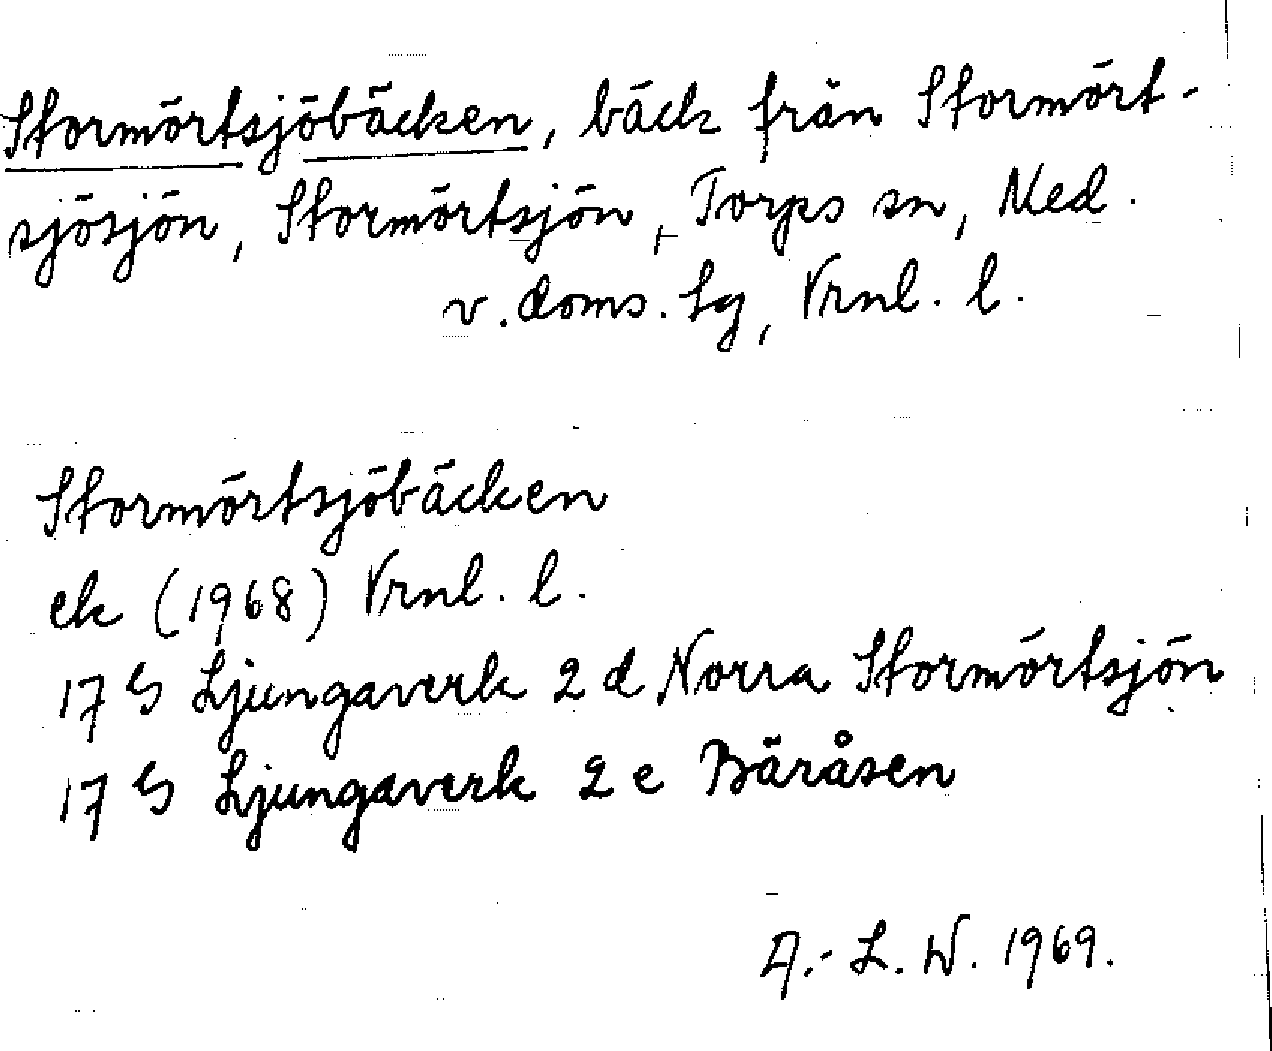 Stormörtsjöbäcken, bäck från Stormört-
sjösjön, Stormörtsjön, Torps sn, Med.
v. doms. lg, Vrnl. l.
Stormörtsjöbäcken
ek (1968) Vrnl. l.
17 G Ljungaverk 2 d Norra Stormörtsjön
17 G Ljungaverk 2 e Bäråsen
A.-L. W. 1969.